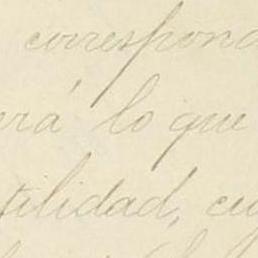 correspond
erá lo que
tilidad, cu